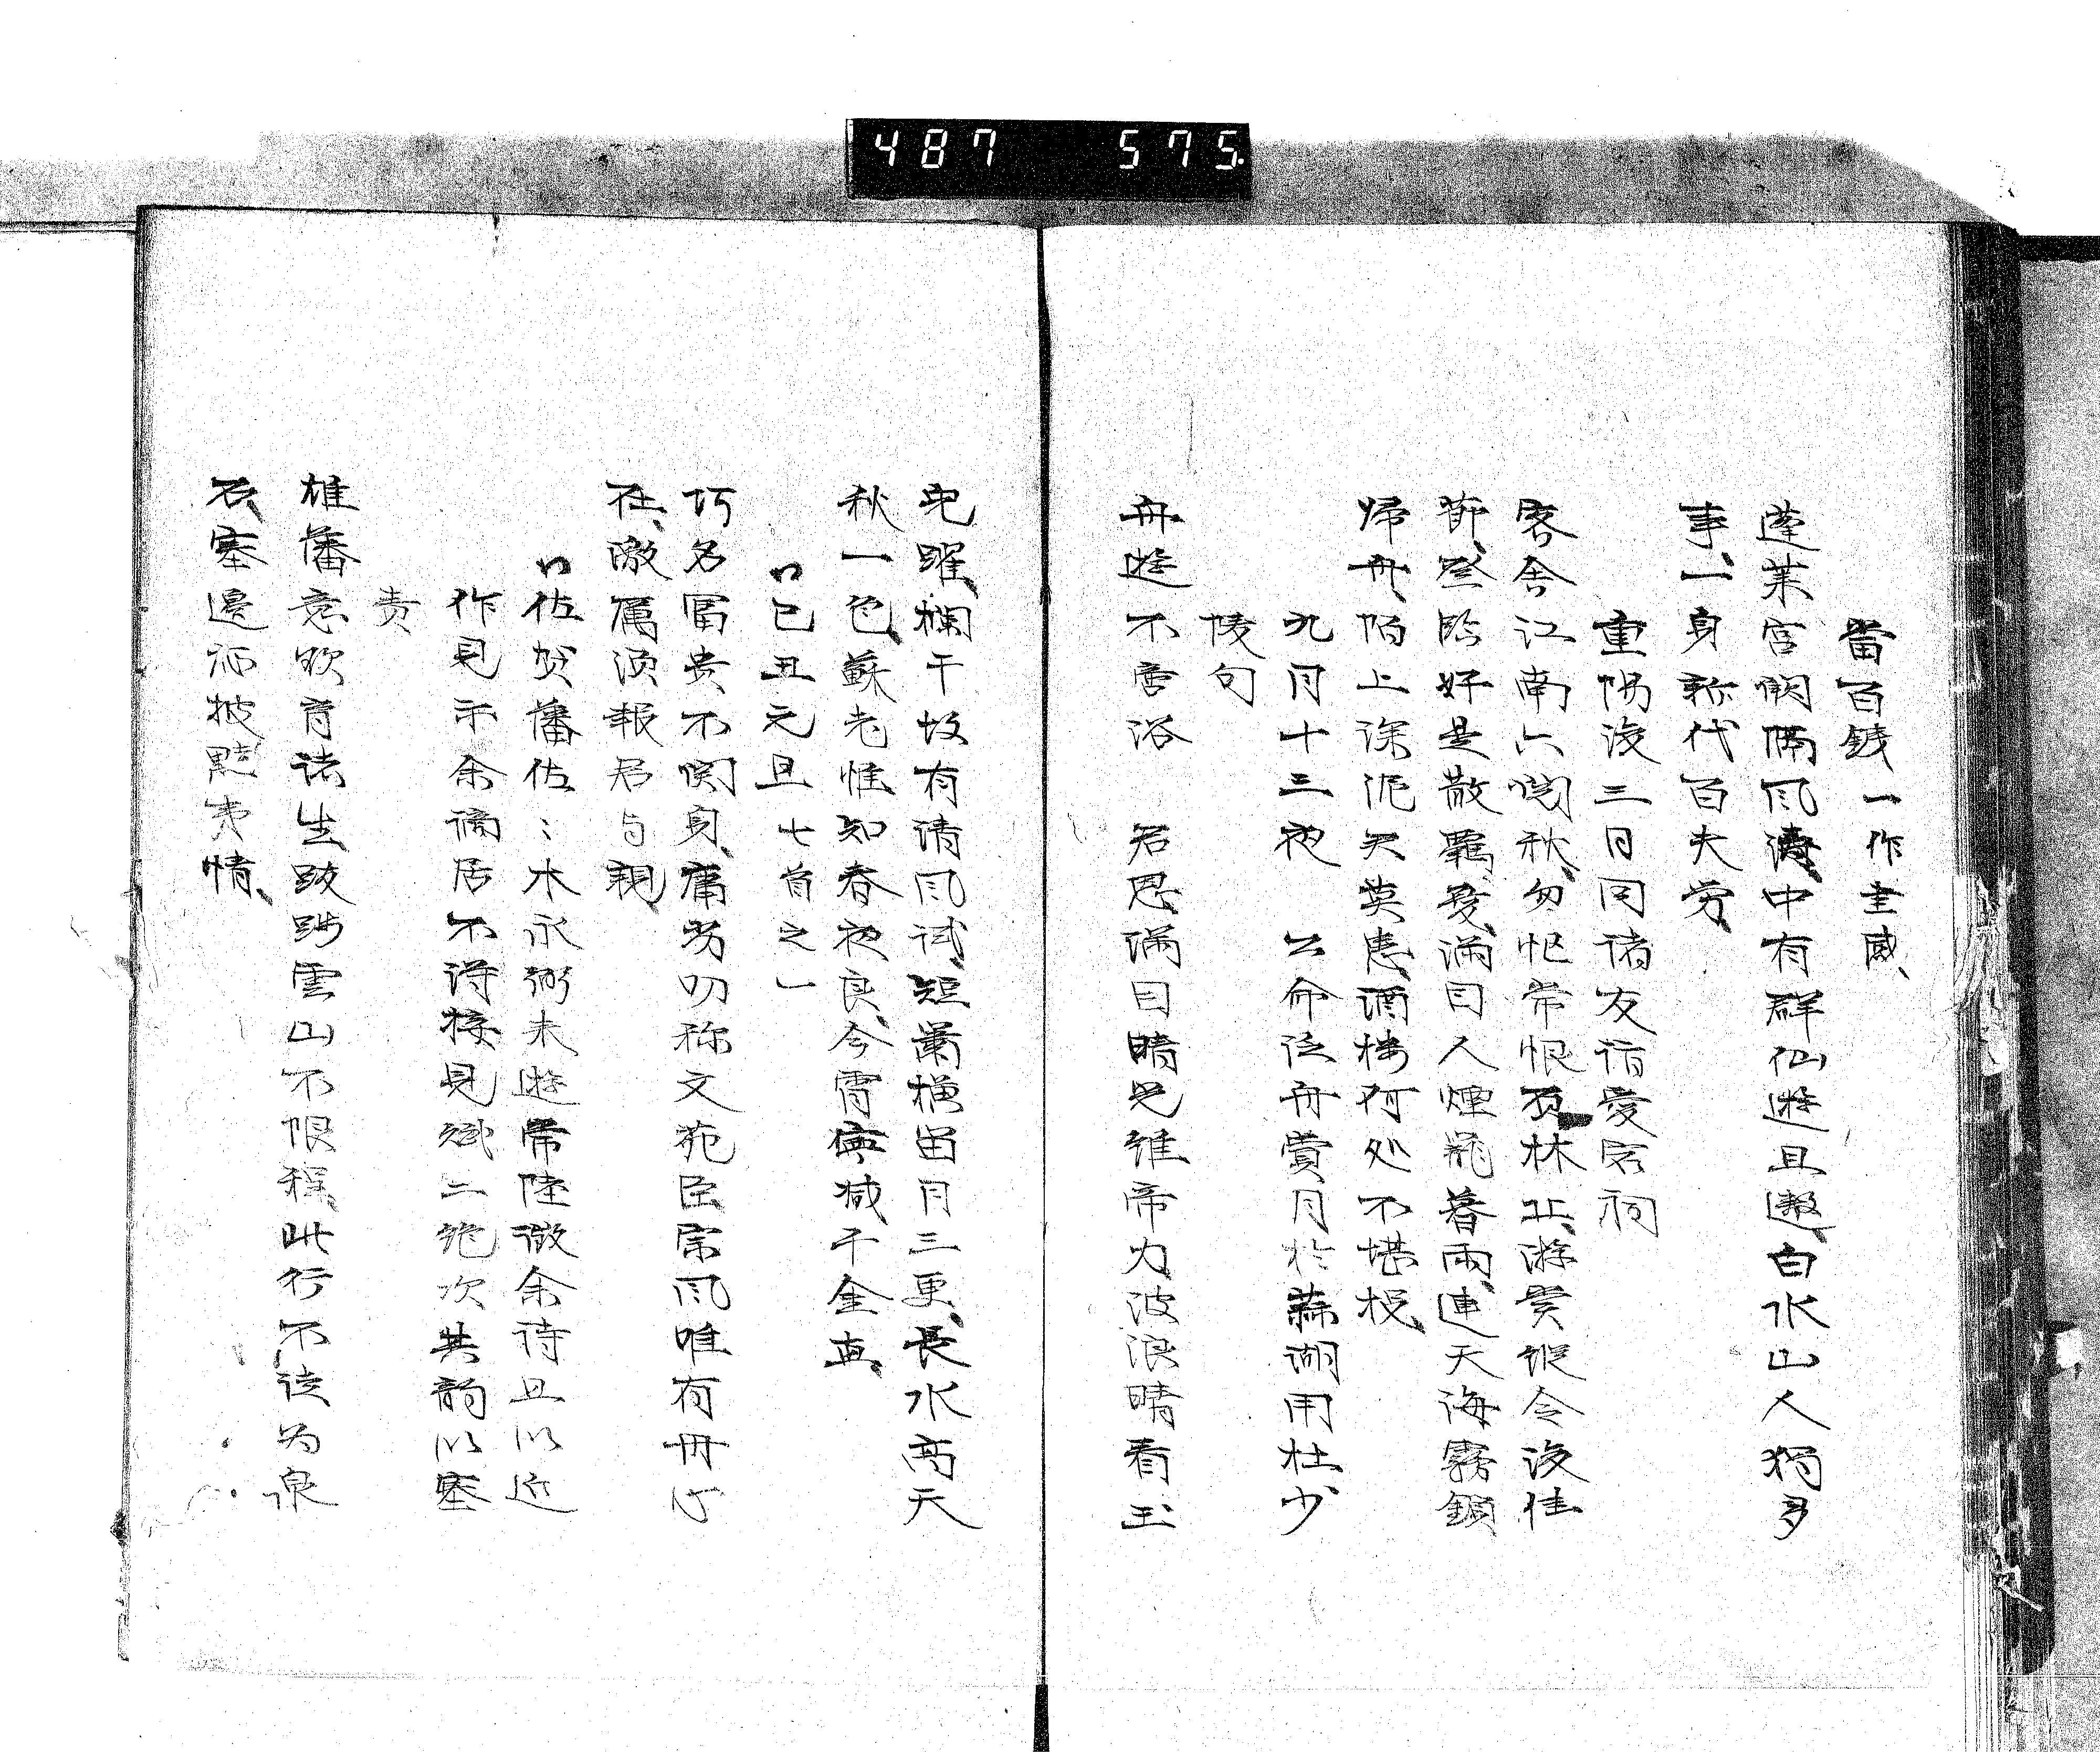 487 575
當百錢一作圭威
蓬莱宫闕隔風濤、中有群仙遊且遨、白水山人獨多
事、一身称代百夫労、
重陽後三日同諸友詣愛宕祠
客舎江南六閲秋、匆忙常恨負林丘、游賞縦令後佳
節、登臨好是散羈憂、満目人煙瓏暮雨、連天海霧鎖
帰舟、陌上深泥君莫恚、酒楼何処不堪投、
九月十三夜 公命泛舟賞月於蒜湖用杜少
陵句
舟遊不啻浴 君恩満目晴光維帝力波浪晴看玉
兎躍、欄干故有清風試、短蕭横笛月三更、長水高天
秋一色、蘇老惟知春夜良、今宵寧減千金直、
己丑元旦七首之一
巧名富貴不関身、庸劣叨称文苑臣、宗風唯有冊心
在、激厲須報君与親、
佐賀藩佐々木永弼来遊常陸徴余詩且以近
作見示余謫居不得接見賦二絶次其韵以塞
責
雄藩意欲育諸生、跋渉雲山不恨程、此行不徒為泉
石、塞邊沿披黠夷情、